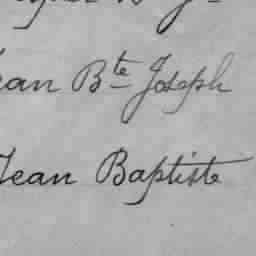 Jean Bte Joseph
Jean Baptiste